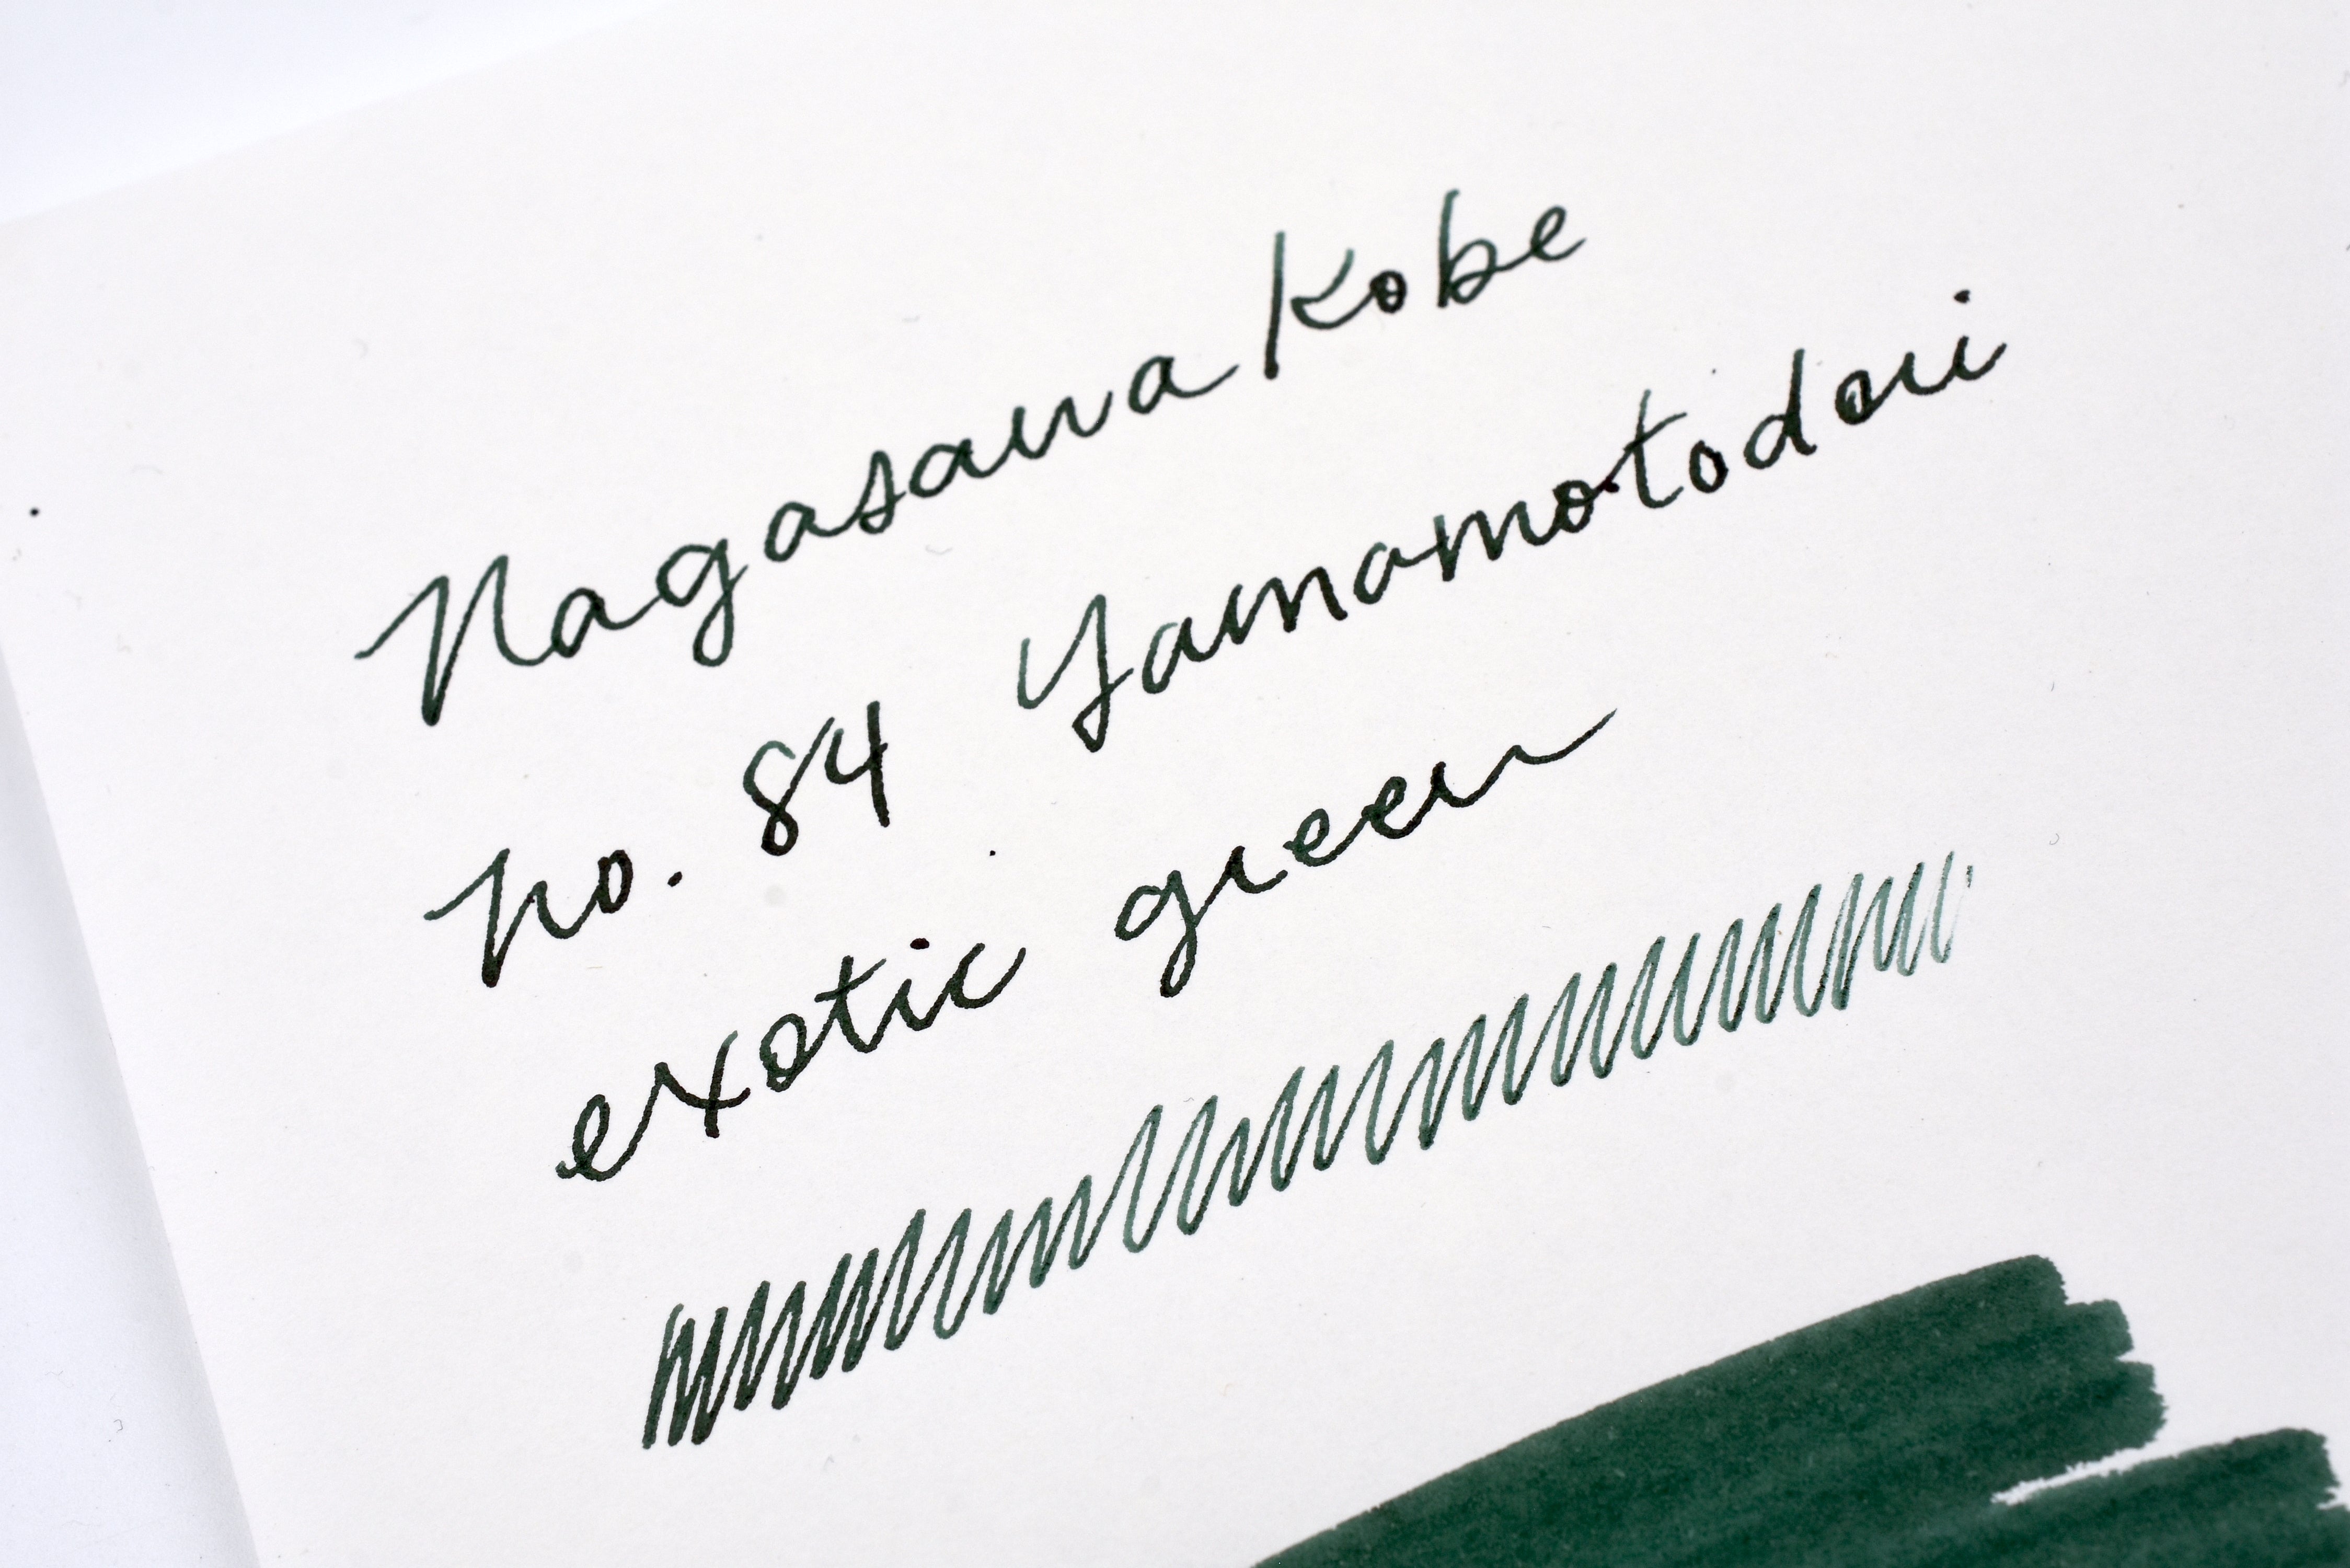 Nagasawa Kobe
No. 84 Yamamotodori
exotic green